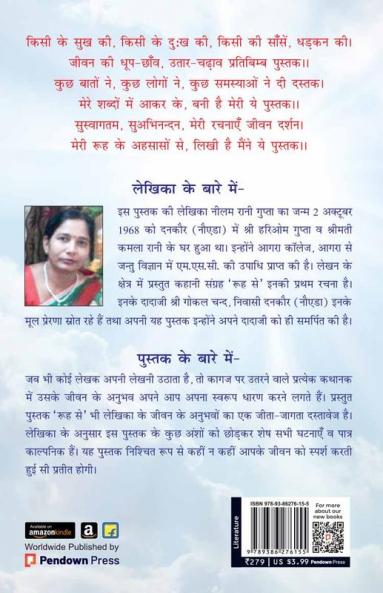 किसी के सुख की, किसी के दुःख की, किसी की साँसें, धड़कन की।
जीवन की धूप-छाँव, उतार-चढ़ाव प्रतिबिम्ब पुस्तक।।
कुछ बातों ने, कुछ लोगों ने, कुछ समस्याओं ने दी दस्तक।
मेरे शब्दों में आकर के, बनी है मेरी ये पुस्तक।।
सुस्वागतम, सुअभिनन्दन, मेरी रचनाएँ जीवन दर्शन।
मेरी रूह के अहसासों से, लिखी है मैंने ये पुस्तक।।
लेखिका के बारे में-
इस पुस्तक की लेखिका नीलम रानी गुप्ता का जन्म 2 अक्टूबर
1968 को दनकौर (नौएडा) में श्री हरिओम गुप्ता व श्रीमती
कमला रानी के घर हुआ था। इन्होंने आगरा कॉलेज, आगरा से
जन्तु विज्ञान में एम.एस.सी. की उपाधि प्राप्त की है। लेखन के
क्षेत्र में प्रस्तुत कहानी संग्रह ‘रूह से’ इनकी प्रथम रचना है।
इनके दादाजी श्री गोकल चन्द, निवासी दनकौर (नौएडा) इनके
मूल प्रेरणा स्रोत रहे हैं तथा अपनी यह पुस्तक इन्होंने अपने दादाजी को ही समर्पित की है।
पुस्तक के बारे में-
जब भी कोई लेखक अपनी लेखनी उठाता है, तो कागज पर उतरने वाले प्रत्येक कथानक
में उसके जीवन के अनुभव अपने आप अपना स्वरूप धारण करने लगते हैं। प्रस्तुत
पुस्तक ‘रूह से’ भी लेखिका के जीवन के अनुभवों का एक जीता-जागता दस्तावेज है।
लेखिका के अनुसार इस पुस्तक के कुछ अंशों को छोड़कर शेष सभी घटनाएँ व पात्र
काल्पनिक हैं। यह पुस्तक निश्चित रूप से कहीं न कहीं आपके जीवन को स्पर्श करती
हुई सी प्रतीत होगी।
Available on
amazonkindle
a
Worldwide Published by
Pendown Press
Literature
ISBN 978-93-86276-15-5
9789386276155
For more
about our
new books
₹279 | US $3.99 Pendown Press